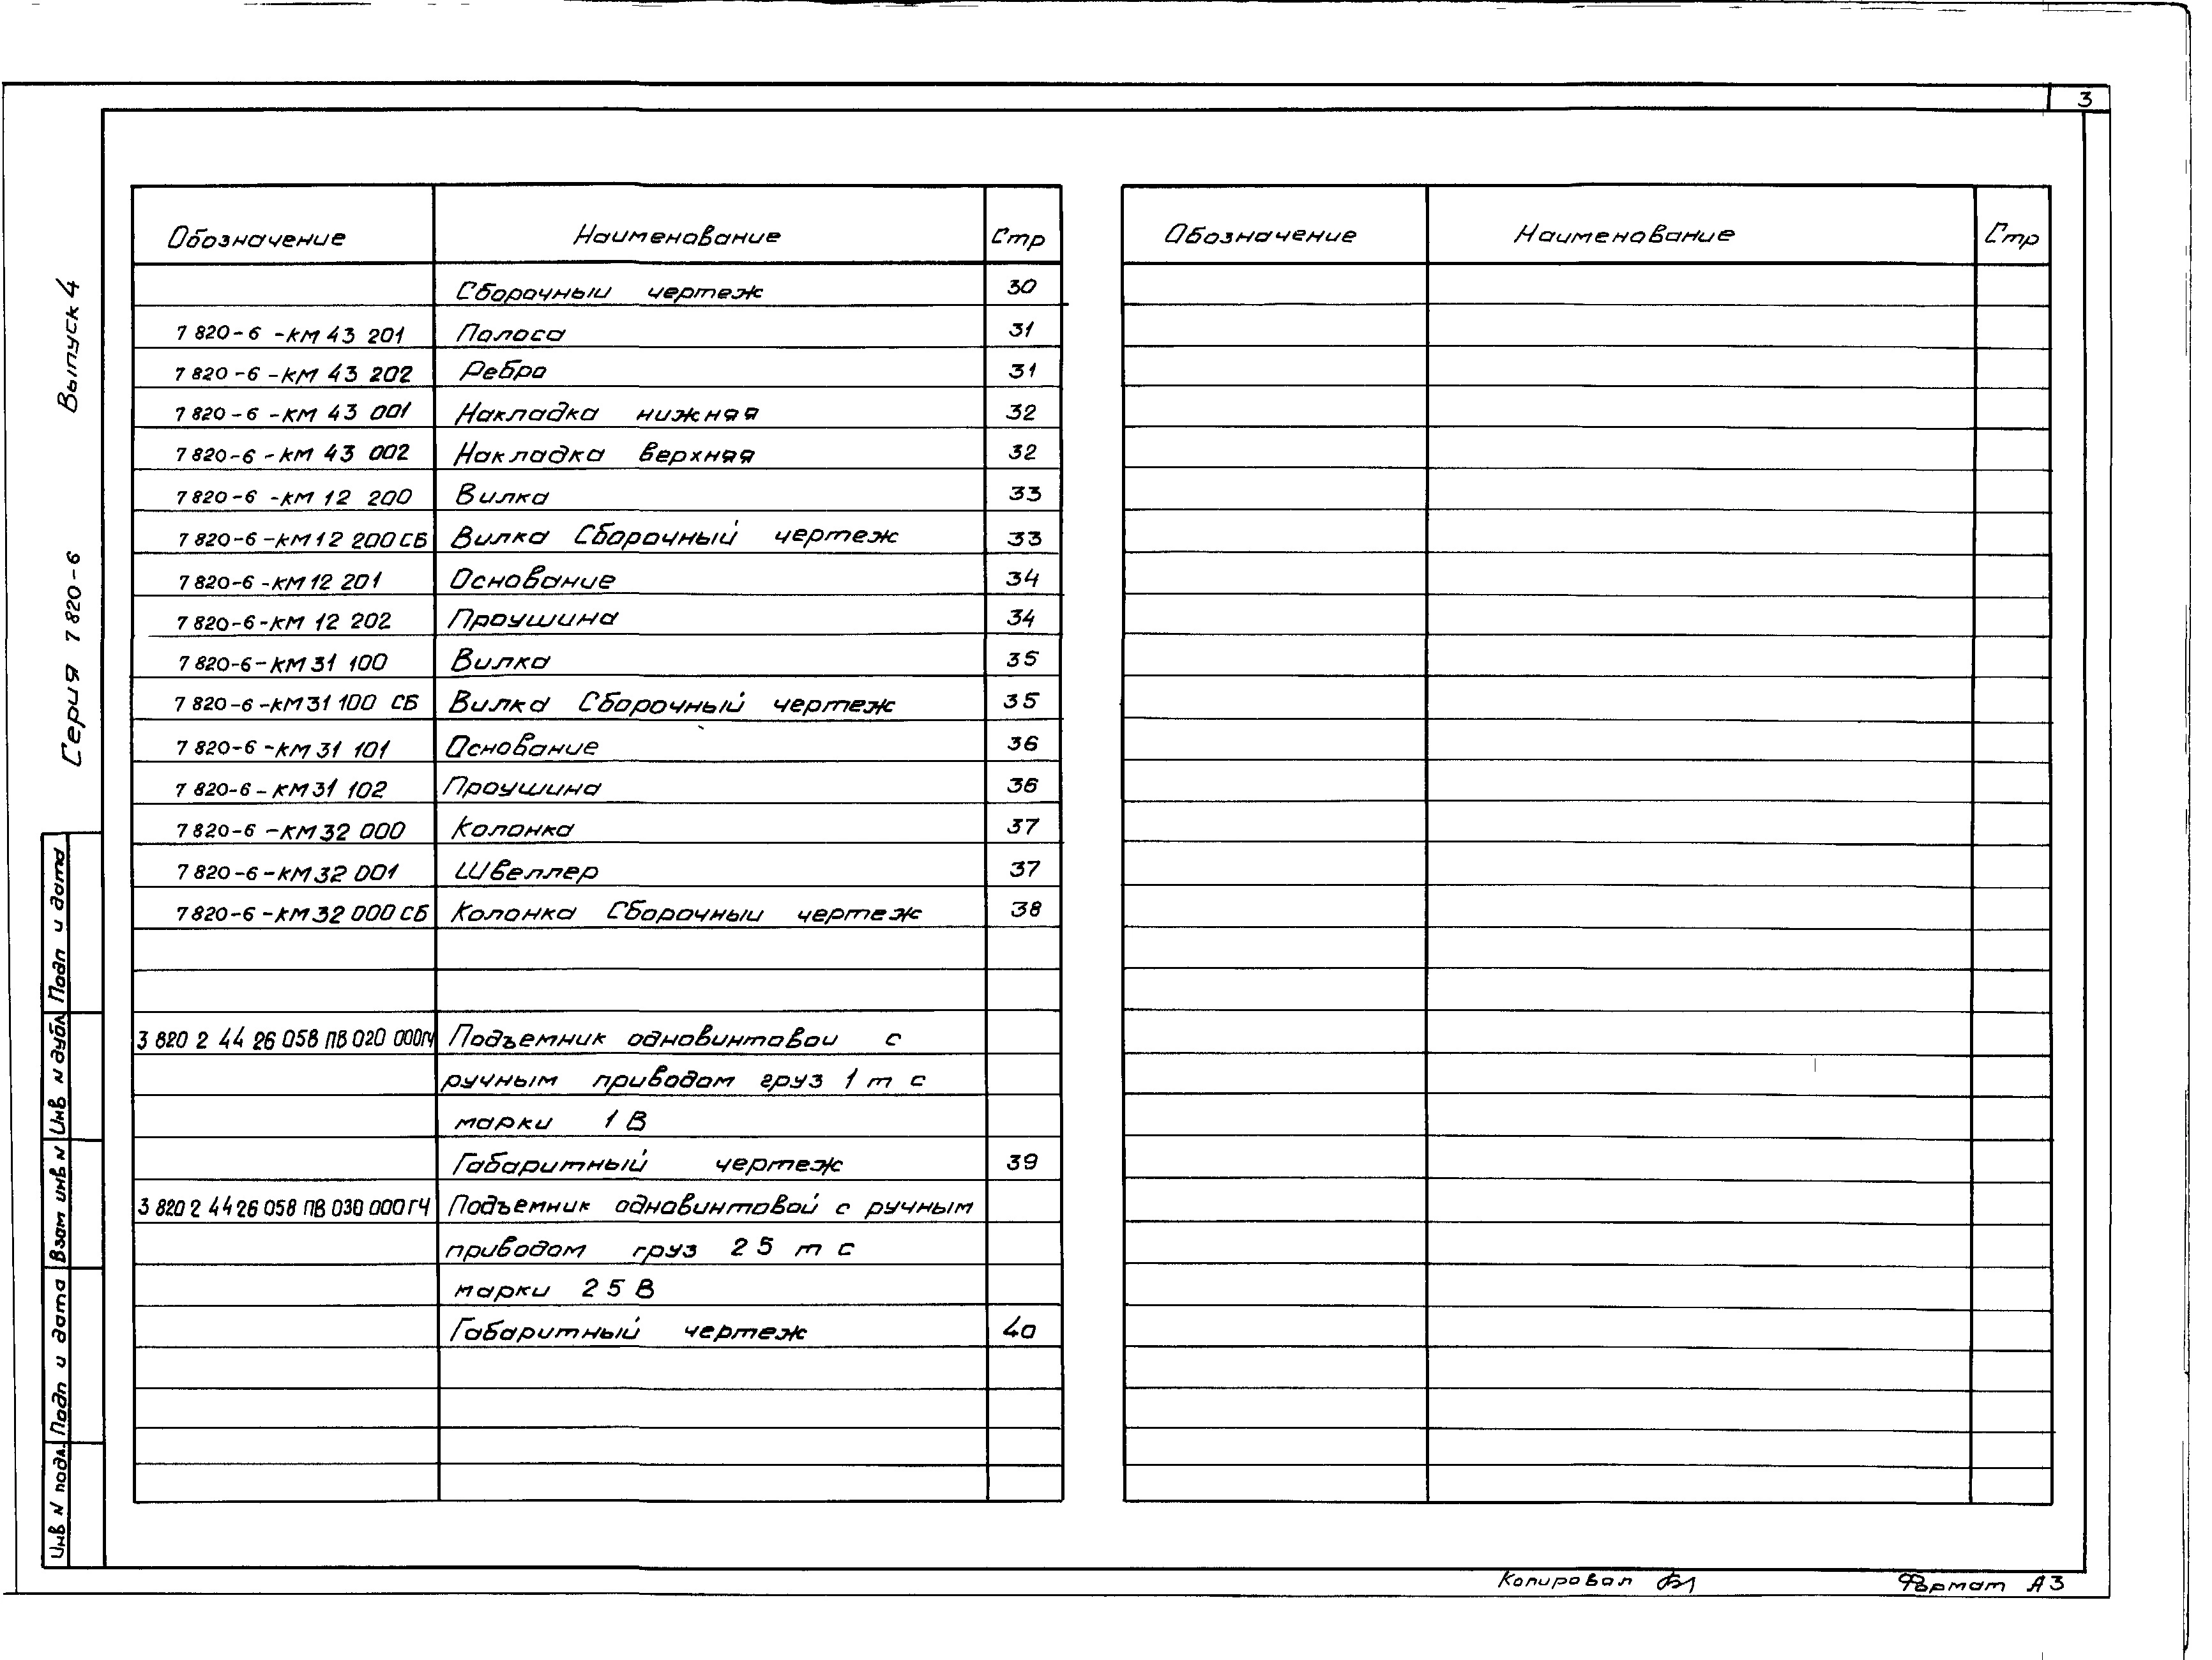 3
Обозначение Наименование Стр
Сборочный чертеж 30
7 820-6-КМ 43 201 Полоса 31
7 820-6-КМ 43 202 Ребро 31
7 820-6-КМ 43 001 Накладка нижняя 32
7 820-6-КМ 43 002 Накладка верхняя 32
7 820-6-КМ 12 200 Вилка 33
7 820-6-КМ 12 200 СБ Вилка Сборочный чертеж 33
7 820-6-КМ 12 201 Основание 34
7 820-6-КМ 12 202 Проушина 34
7 820-6-КМ 31 100 Вилка 35
7 820-6-КМ 31 100 СБ Вилка Сборочный чертеж 35
7 820-6-КМ 31 101 Основание 36
7 820-6-КМ 31 102 Проушина 36
7 820-6-КМ 32 000 Колонка 37
7 820-6-КМ 32 001 Швеллер 37
7 820-6-КМ 32 000 СБ Колонка Сборочный чертеж 38
3 820 2 44 26 058 ПВ 020 000ГЧ Подъемник одновинтовой с
ручным приводом груз 1 т с
марки 1 В
Габаритный чертеж 39
3 820 2 44 26 058 ПВ 030 000 ГЧ Подъемник одновинтовой с ручным
приводом груз 2 5 т с
марки 2 5 В
Габаритный чертеж 40
Обозначение Наименование Стр
Серия 7 820-6 Выпуск 4
Инв N подл. Подп и дата Взам инв N Инв N дубл Подп и дата
Копировал Формат А3